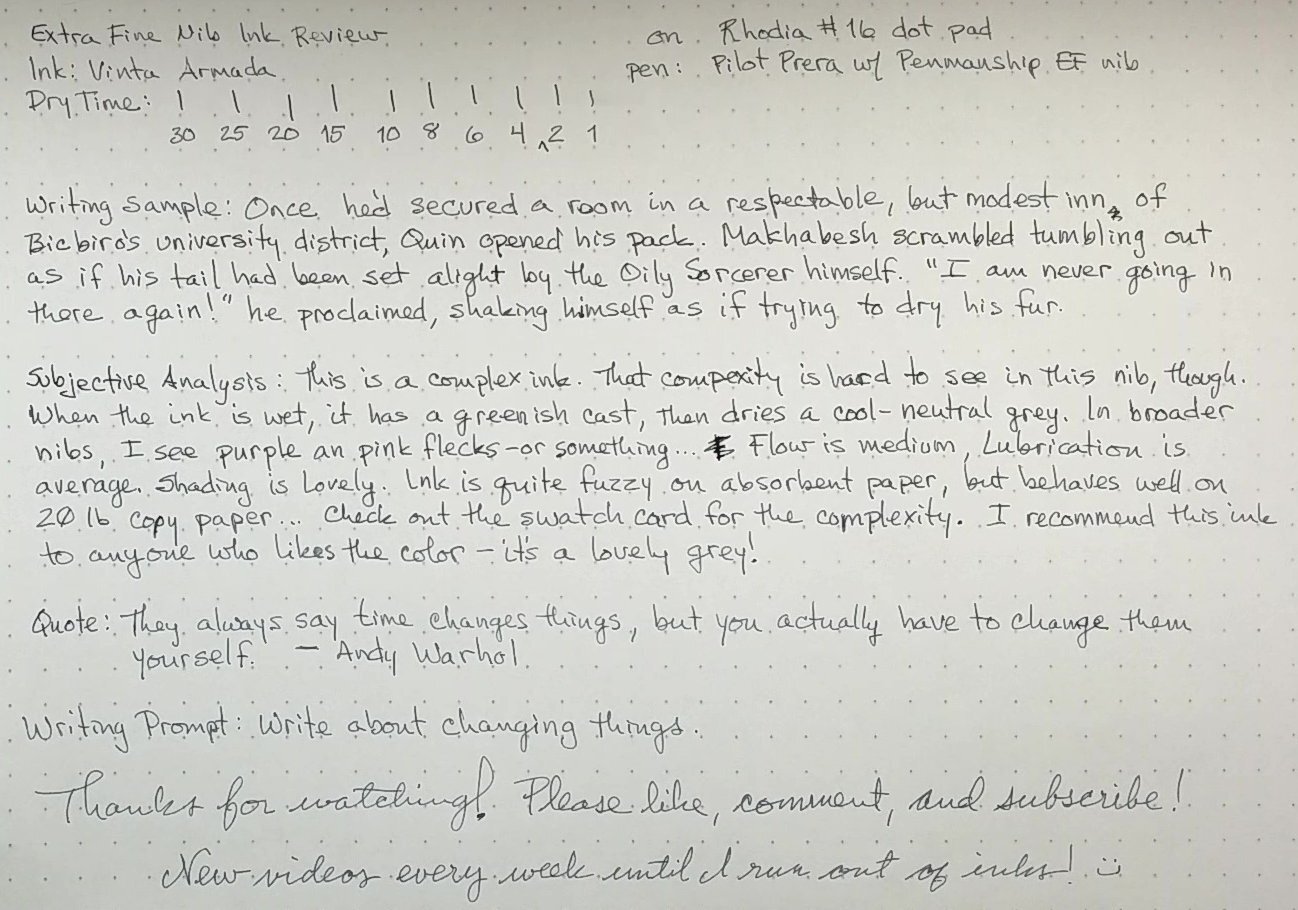 Extra Fine Nib Ink Review on Rhodia #16 dot pad
Ink: Vinta Armada pen: Pilot Prera w/ Penmanship EF nib
Dry Time: | | | | | | | | | |
30 25 20 15 10 8 6 4 2 1
Writing Sample: Once he'd secured a room in a respectable, but modest inn, of
Bicbiro's university district, Quin opened his pack. Makhabesh scrambled tumbling out
as if his tail had been set alight by the Oily Sorcerer himself. "I am never going in
there again!" he proclaimed, shaking himself as if trying to dry his fur.
Subjective Analysis: This is a complex ink. That compexity is hard to see in this nib, though.
When the ink is wet, it has a greenish cast, then dries a cool-neutral grey. In broader
nibs, I see purple an pink flecks-or something... Flow is medium, Lubrication is
average. Shading is Lovely. Ink is quite fuzzy on absorbent paper, but behaves well on
20 lb copy paper... Check out the swatch card for the complexity. I recommend this ink
to anyone who likes the color - it's a lovely grey!
Quote: They always say time changes things, but you actually have to change them
yourself." - Andy Warhol
Writing Prompt: Write about changing things.
Thanks for watching! Please like, comment, and subscribe!
New videos every week until I run out of inks! :)